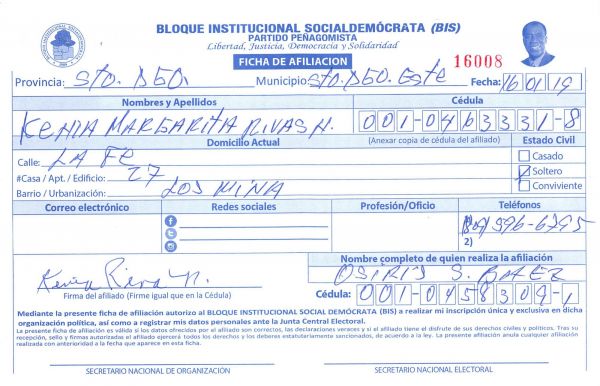 BLOQUE INSTITUCIONAL SOCIALDEMÓCRATA (BIS)
PARTIDO PEÑAGOMISTA
Libertad, Justicia, Democracia y Solidaridad
FICHA DE AFILIACION 16008
Provincia: Sto. Dgo. Municipio Sto. Dgo. Este Fecha: 16/01/19
Nombres y Apellidos Cédula
Kenia Margarita Rivas H. 001-0463331-8
Domicilio Actual (Anexar copia de cédula del afiliado) Estado Civil
Calle: La Fe Casado
#Casa / Apt. / Edificio: 27 Soltero
Barrio / Urbanización: Los Mina Conviviente
Correo electrónico Redes sociales Profesión/Oficio Teléfonos
(809) 596-6795
2)
Nombre completo de quien realiza la afiliación
Osiris S. Baez
Kenia Rivas H.
Firma del afiliado (Firme igual que en la Cédula) Cédula: 001-0458309-1
Mediante la presente ficha de afiliación autorizo al BLOQUE INSTITUCIONAL SOCIAL DEMÓCRATA (BIS) a realizar mi inscripción única y exclusiva en dicha
organización política, así como a registrar mis datos personales ante la Junta Central Electoral.
La presente ficha de afiliación es válida si los datos ofrecidos por el afiliado son correctos, las declaraciones veraces y si el afiliado tiene el disfrute de sus derechos civiles y políticos. Tras su
recepción, sello y firmas autorizadas el afiliado ejercerá todos los derechos y los deberes estatutariamente sancionados, de acuerdo a la ley. La presente afiliación anula cualquier afiliación
realizada con anterioridad a la fecha que aparece en esta ficha.
SECRETARIO NACIONAL DE ORGANIZACIÓN SECRETARIO NACIONAL ELECTORAL